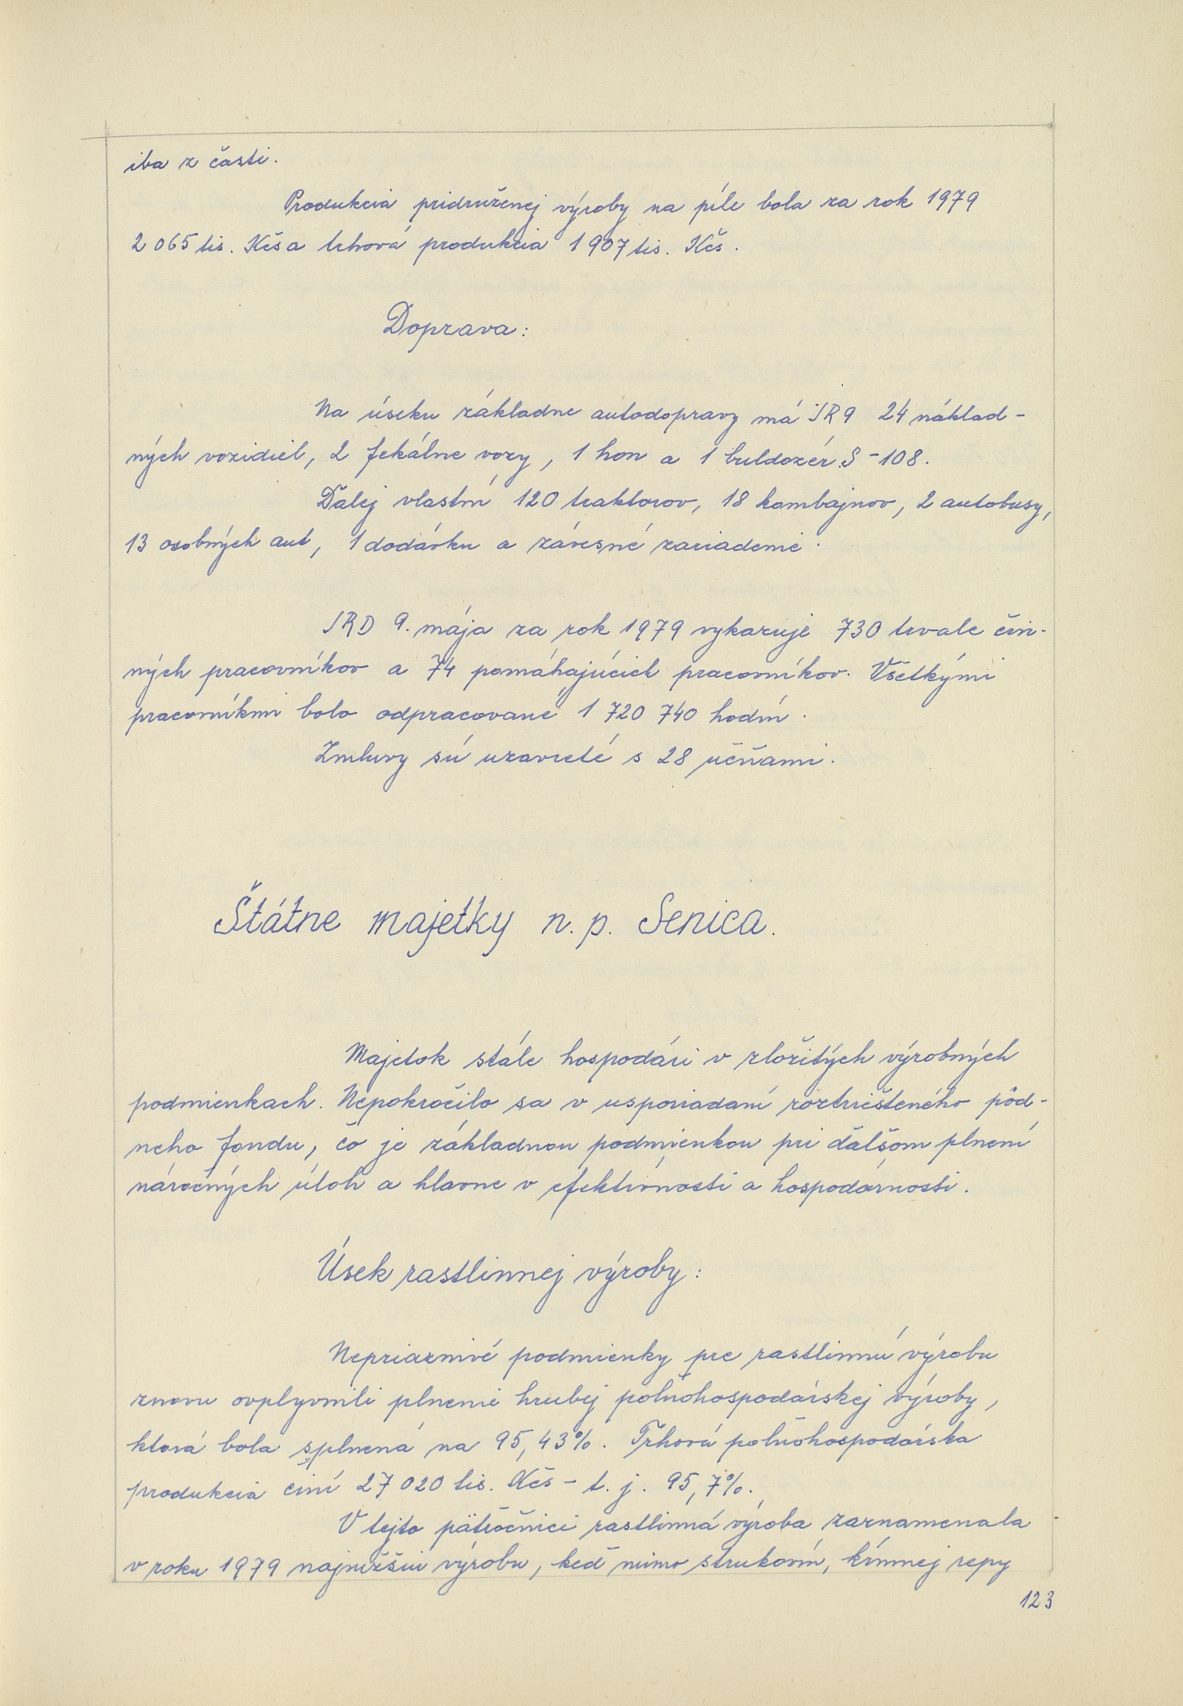 iba z časti.
Produkcia pridruženej výroby na píle bola za rok 1979
2 065 tis. Kčs a trhová produkcia 1 907 tis. Kčs.
Doprava:
Na úseku základne autodopravy má JRD 24 náklad-
ných vozidiel, 2 fekálne vozy, 1 hon a 1 buldozér S-108.
Ďalej vlastní 120 traktorov, 18 kombajnov, 2 autobusy,
13 osobných aut, 1 dodávku a závesné zariadenie.
JRD 9. mája za rok 1979 vykazuje 730 trvale čin-
ných pracovníkov a 74 pomáhajúcich pracovníkov. Všetkými
pracovníkmi bolo odpracované 1 720 740 hodín.
Zmluvy sú uzavreté s 28 učňami.
Štátne majetky n. p. Senica.
Majetok stále hospodári v zložitých výrobných
podmienkach. Nepokročilo sa v usporiadaní roztriešteného pôd-
neho fondu, čo je základnou podmienkou pri ďalšom plnení
náročných úloh a hlavne v efektívnosti a hospodárnosti.
Úsek rastlinnej výroby:
Nepriaznivé podmienky pre rastlinnú výrobu
znovu ovplyvnili plnenie hrubej poľnohospodárskej výroby,
ktorá bola splnená na 95,43%. Tržná poľnohospodárska
produkcia činí 27 020 tis. Kčs - t. j. 95,7%.
V tejto päťročnici rastlinná výroba zaznamenala
v roku 1979 najnižšiu výrobu, keď mimo strukovín, kŕmnej repy
123